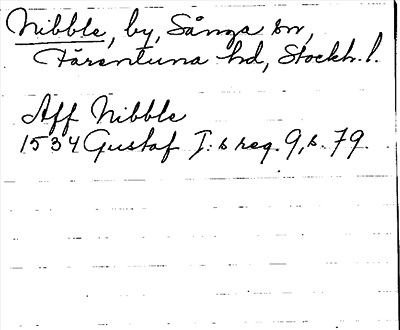 Nibble, by, Sånga sn,
Färentuna hd, Stockh. l.
Aff Nibble
1534 Gustaf I:s reg. 9, s. 79.